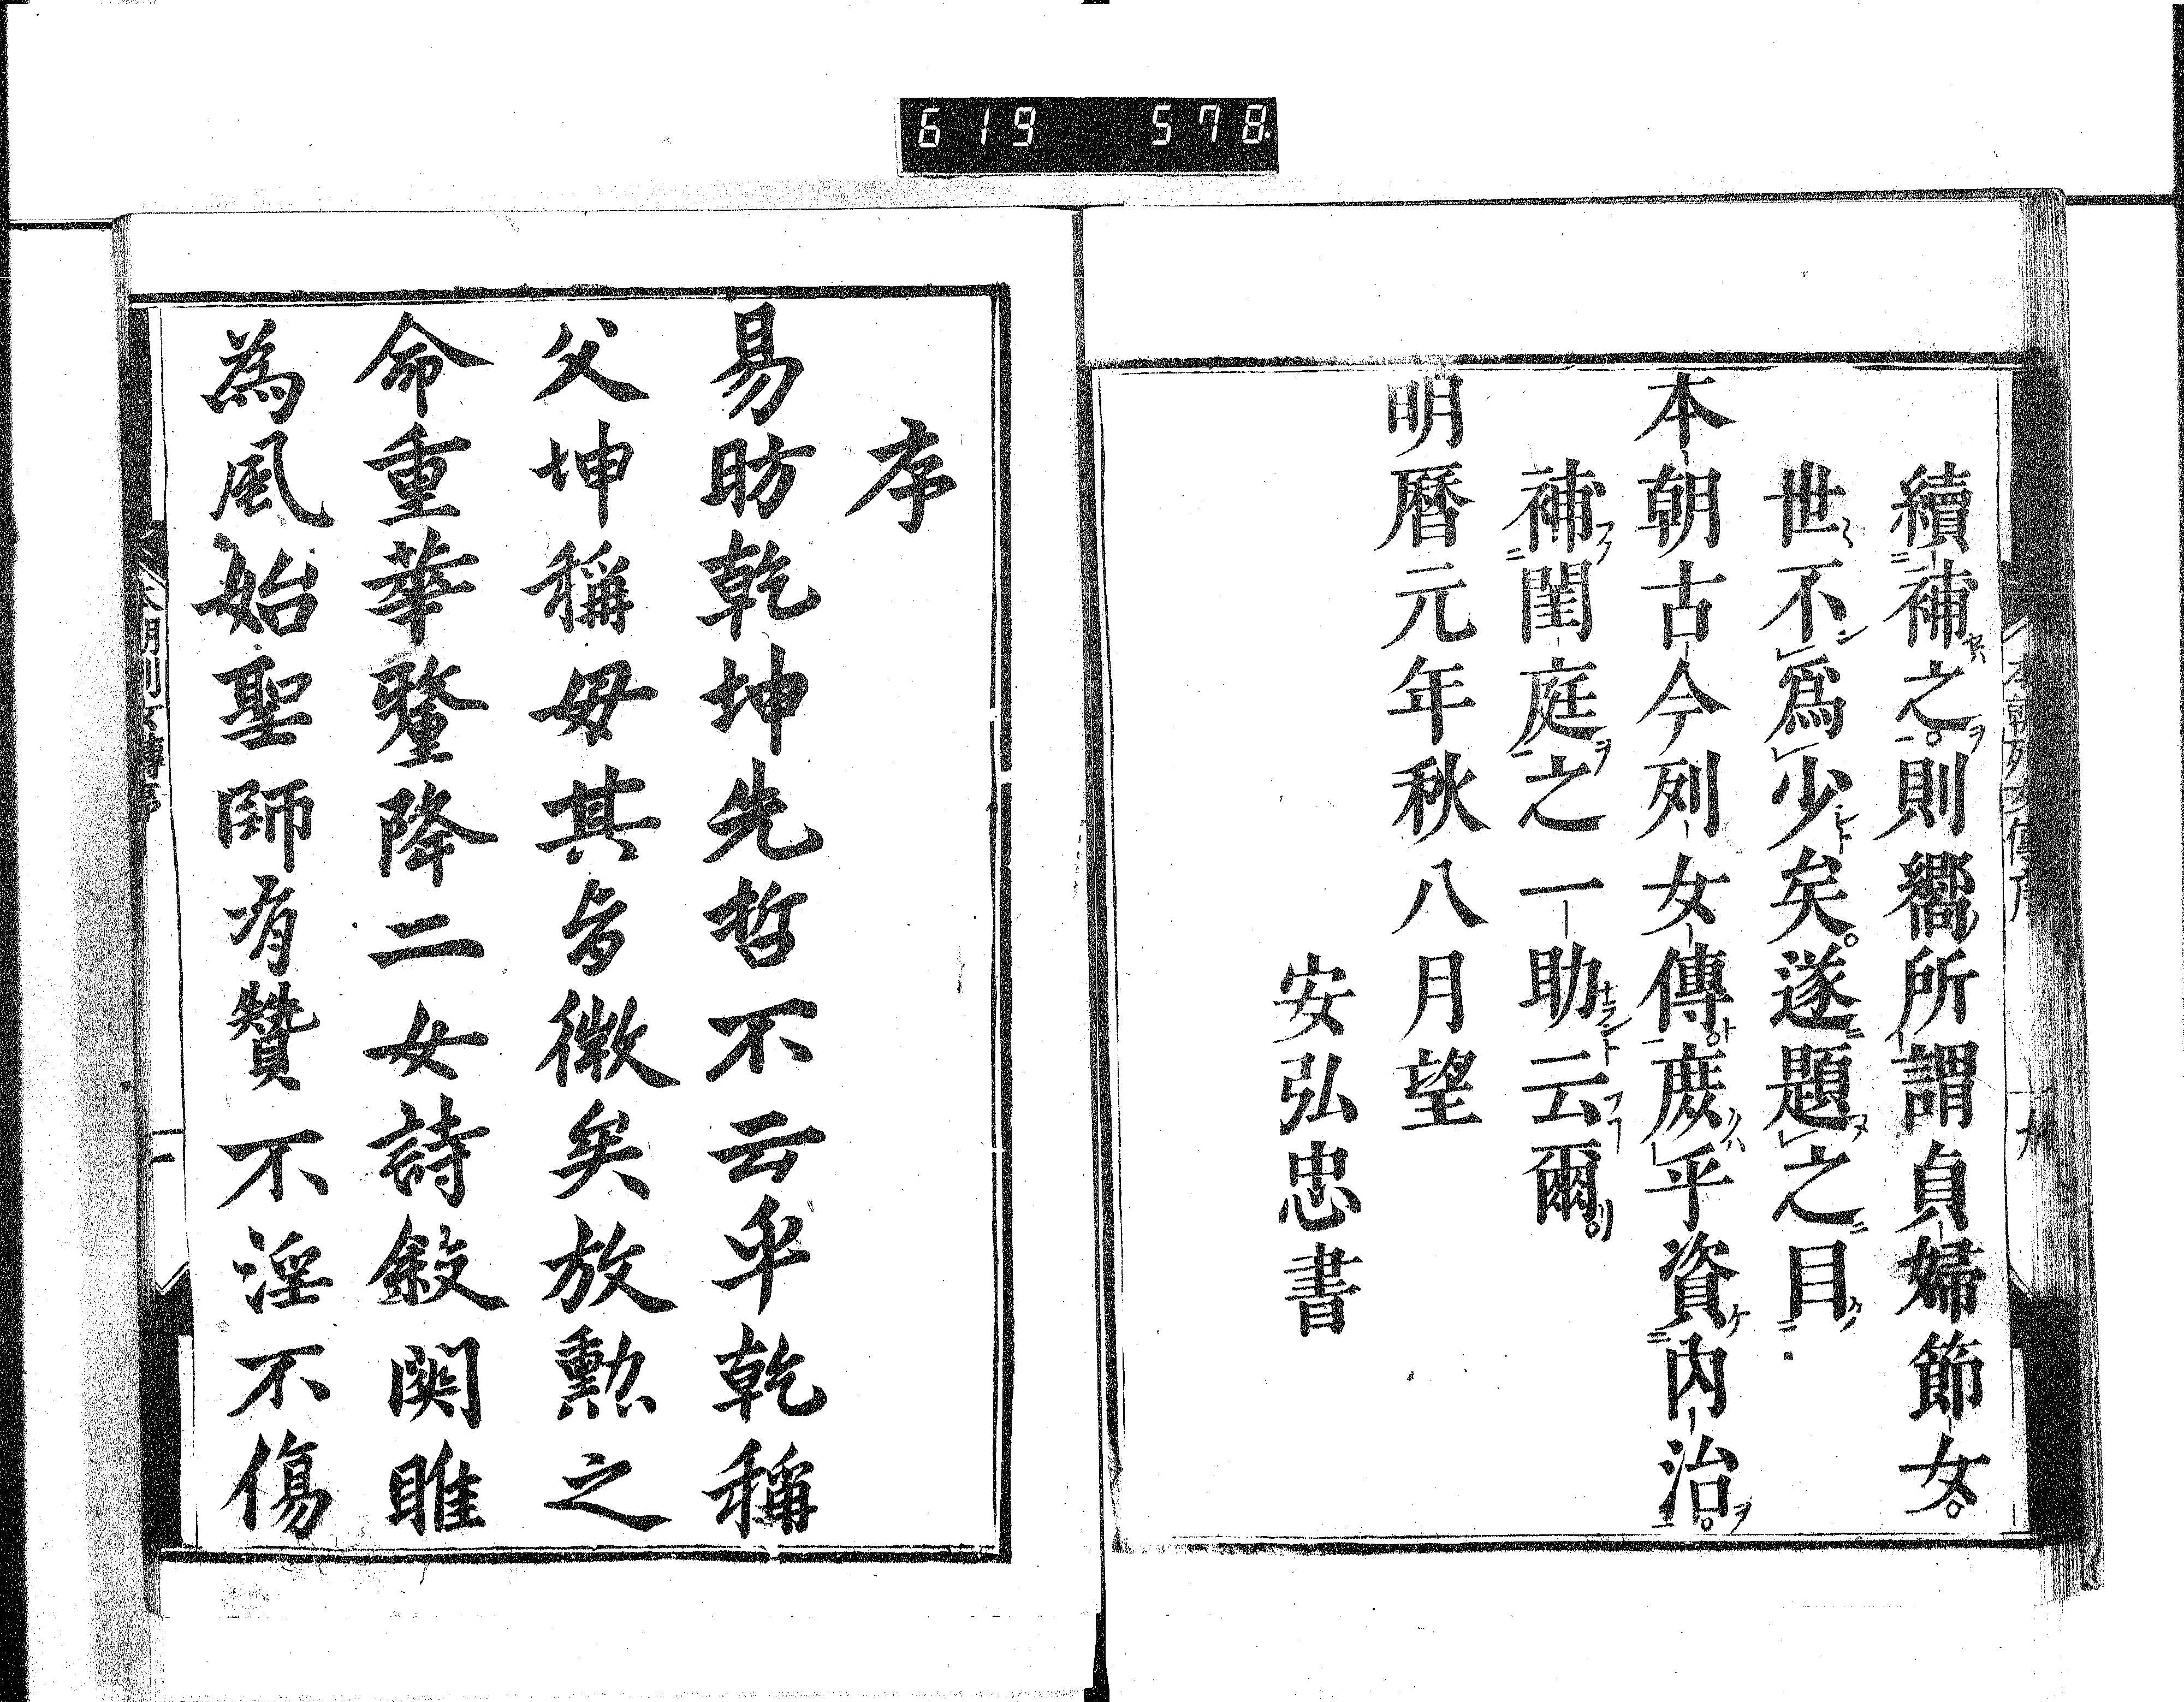 619 578
續補之則嚮所謂貞婦節女。
世不爲少矣。遂題之目
本朝古今列女傳。庶乎資內治。
補閨庭之一助云爾。
明曆元年秋八月望
安弘忠書
序
易昉乾坤先哲不云乎乾稱
父坤稱母其旨微矣放勲之
命重華釐降二女詩敍関雎
為風始聖師有贊不淫不傷